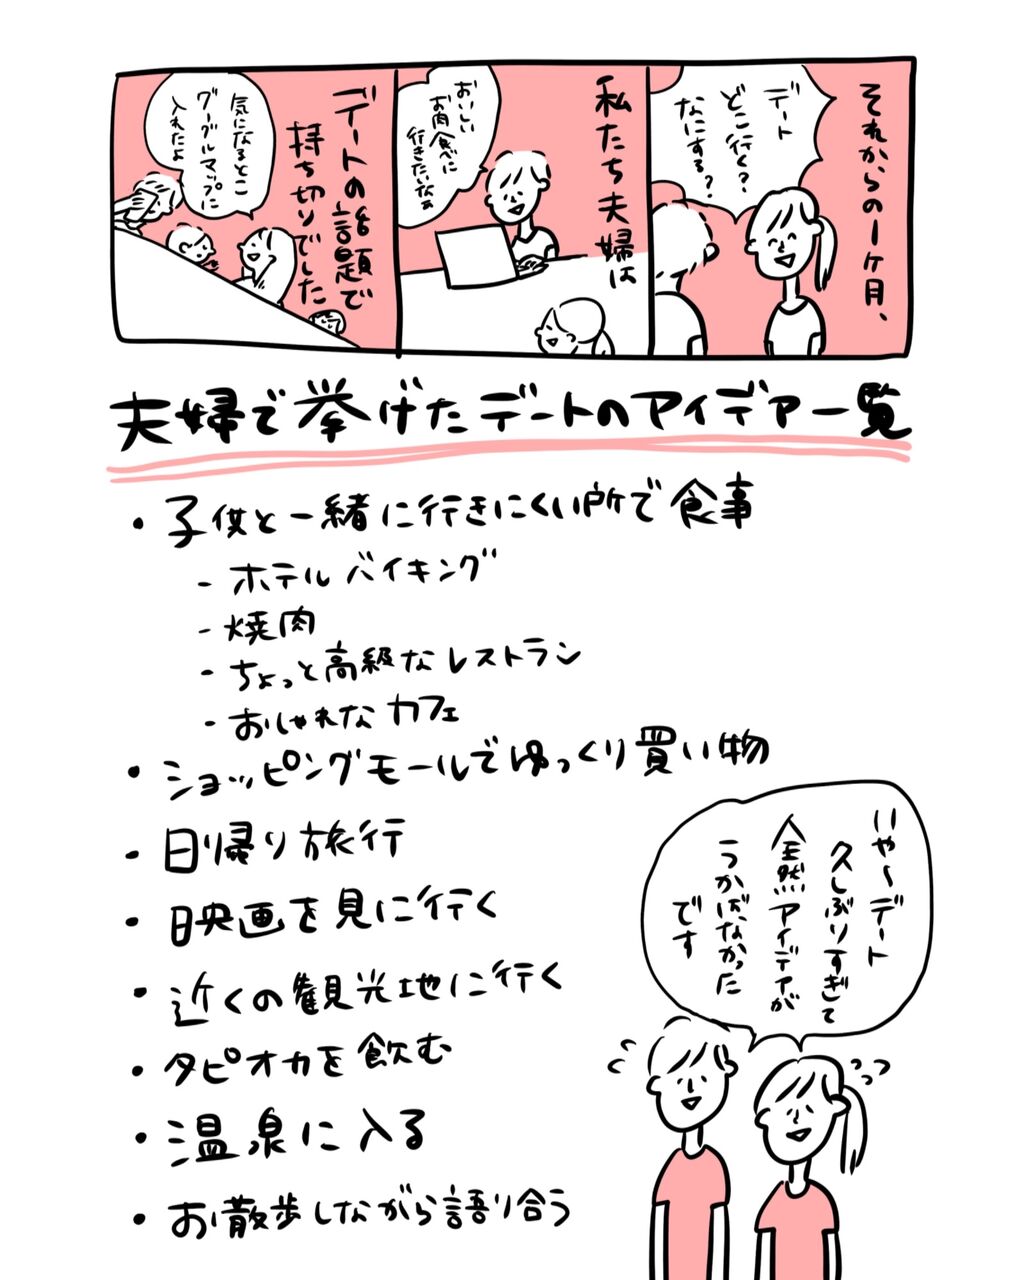 それからの1ヶ月、
デート
どこ行く?
なにする?
私たち夫婦は
おいしい
お肉食べに
行きたいなぁ
デートの話題で
持ち切りでした
気になるとこ
グーグルマップに
入れたよ
夫婦で挙げたデートのアイデア一覧
・子供と一緒に行きにくい所で食事
- ホテルバイキング
- 焼肉
- ちょっと高級なレストラン
- おしゃれなカフェ
・ショッピングモールでゆっくり買い物
・日帰り旅行
・映画を見に行く
・近くの観光地に行く
・タピオカを飲む
・温泉に入る
・お散歩しながら語り合う
いや〜デート
久しぶりすぎて
全然アイディアが
うかばなかった
です